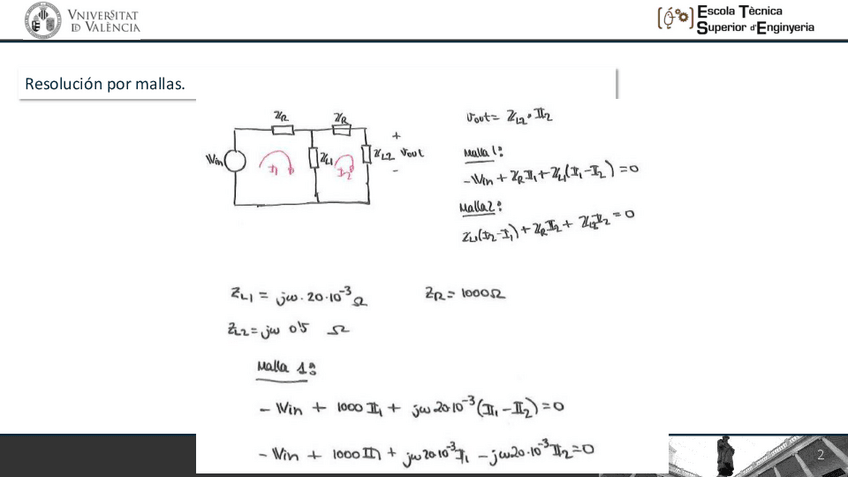 VNIVERSITAT
ID VALÈNCIA
Escola Tècnica
Superior d'Enginyeria
Resolución por mallas.
ZR ZR
Win ZL1 ZL2 Vout
+
-
I1 I2
Vout = ZL2 · I2
Malla 1:
-Win + ZR I1 + ZL1(I1 - I2) = 0
Malla 2:
ZL1(I2 - I1) + ZR I2 + ZL2 I2 = 0
ZL1 = jω · 20 · 10⁻³ Ω ZR = 1000 Ω
ZL2 = jω 0'5 Ω
Malla 1:
- Win + 1000 I1 + jω 20 10⁻³ (I1 - I2) = 0
- Win + 1000 I1 + jω 20 10⁻³ I1 - jω 20 · 10⁻³ I2 = 0
2